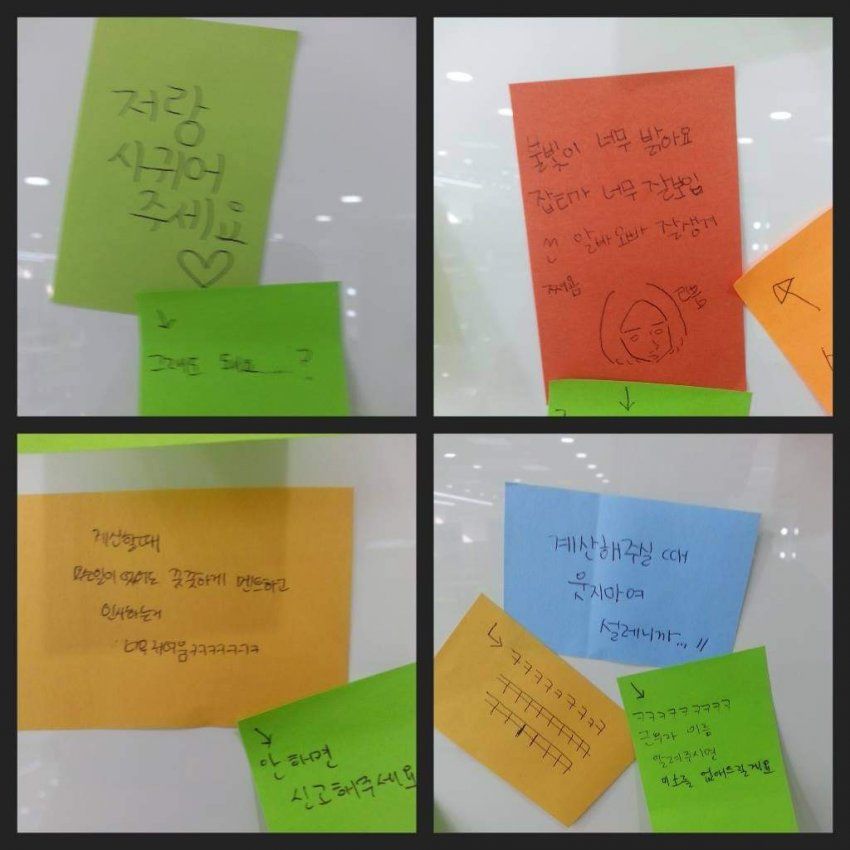 저랑
사귀어
주세요
♡
↓
그래도 돼요....?
불빛이 너무 밝아요
잡티가 너무 잘보임
알바오빠 잘생겨
↓
계산할때
무슨일이 있어도 꿋꿋하게 멘트하고
인사하는거
너무 귀여움ㅋㅋㅋㅋㅋㅋㅋ
↘
안 하면
신고해주세요
계산해주실 때
웃지마여
설레니까...!!
↘
ㅋㅋㅋㅋㅋㅋㅋㅋㅋ
↘
ㅋㅋㅋㅋㅋㅋㅋㅋㅋ
근무자 이름
알려주시면
미소를 없애드릴게요